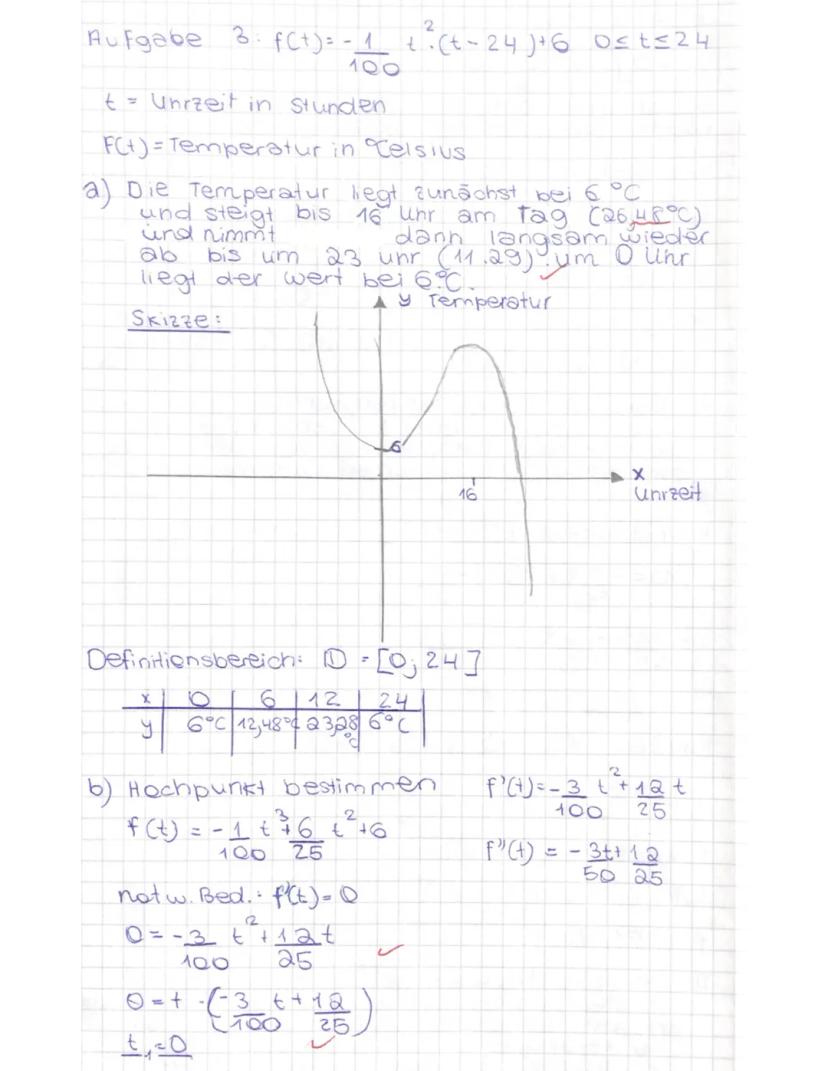 Aufgabe 3: f(t)= -1/100 t²·(t-24)+6 0≤t≤24
t = Uhrzeit in Stunden
F(t)=Temperatur in °Celsius
a) Die Temperatur liegt zunächst bei 6 °C
und steigt bis 16 Uhr am Tag (26,48°C)
und nimmt dann langsam wieder
ab bis um 23 uhr (11.29). um 0 Uhr
liegt der wert bei 6°C.
y Temperatur
Skizze:
6
x
16
Uhrzeit
Definitionsbereich: D = [0; 24]
x | 0 | 6 | 12 | 24
y | 6°C | 12,48°C | 23,28 °C | 6°C
b) Hochpunkt bestimmen f'(t)= -3/100 t² + 12/25 t
f(t) = -1/100 t³ + 6/25 t² + 6
f''(t) = -3t/50 + 12/25
notw. Bed.: f'(t)= 0
0 = -3/100 t² + 12t/25
0 = t · (-3/100 t + 12/25)
t₁=0